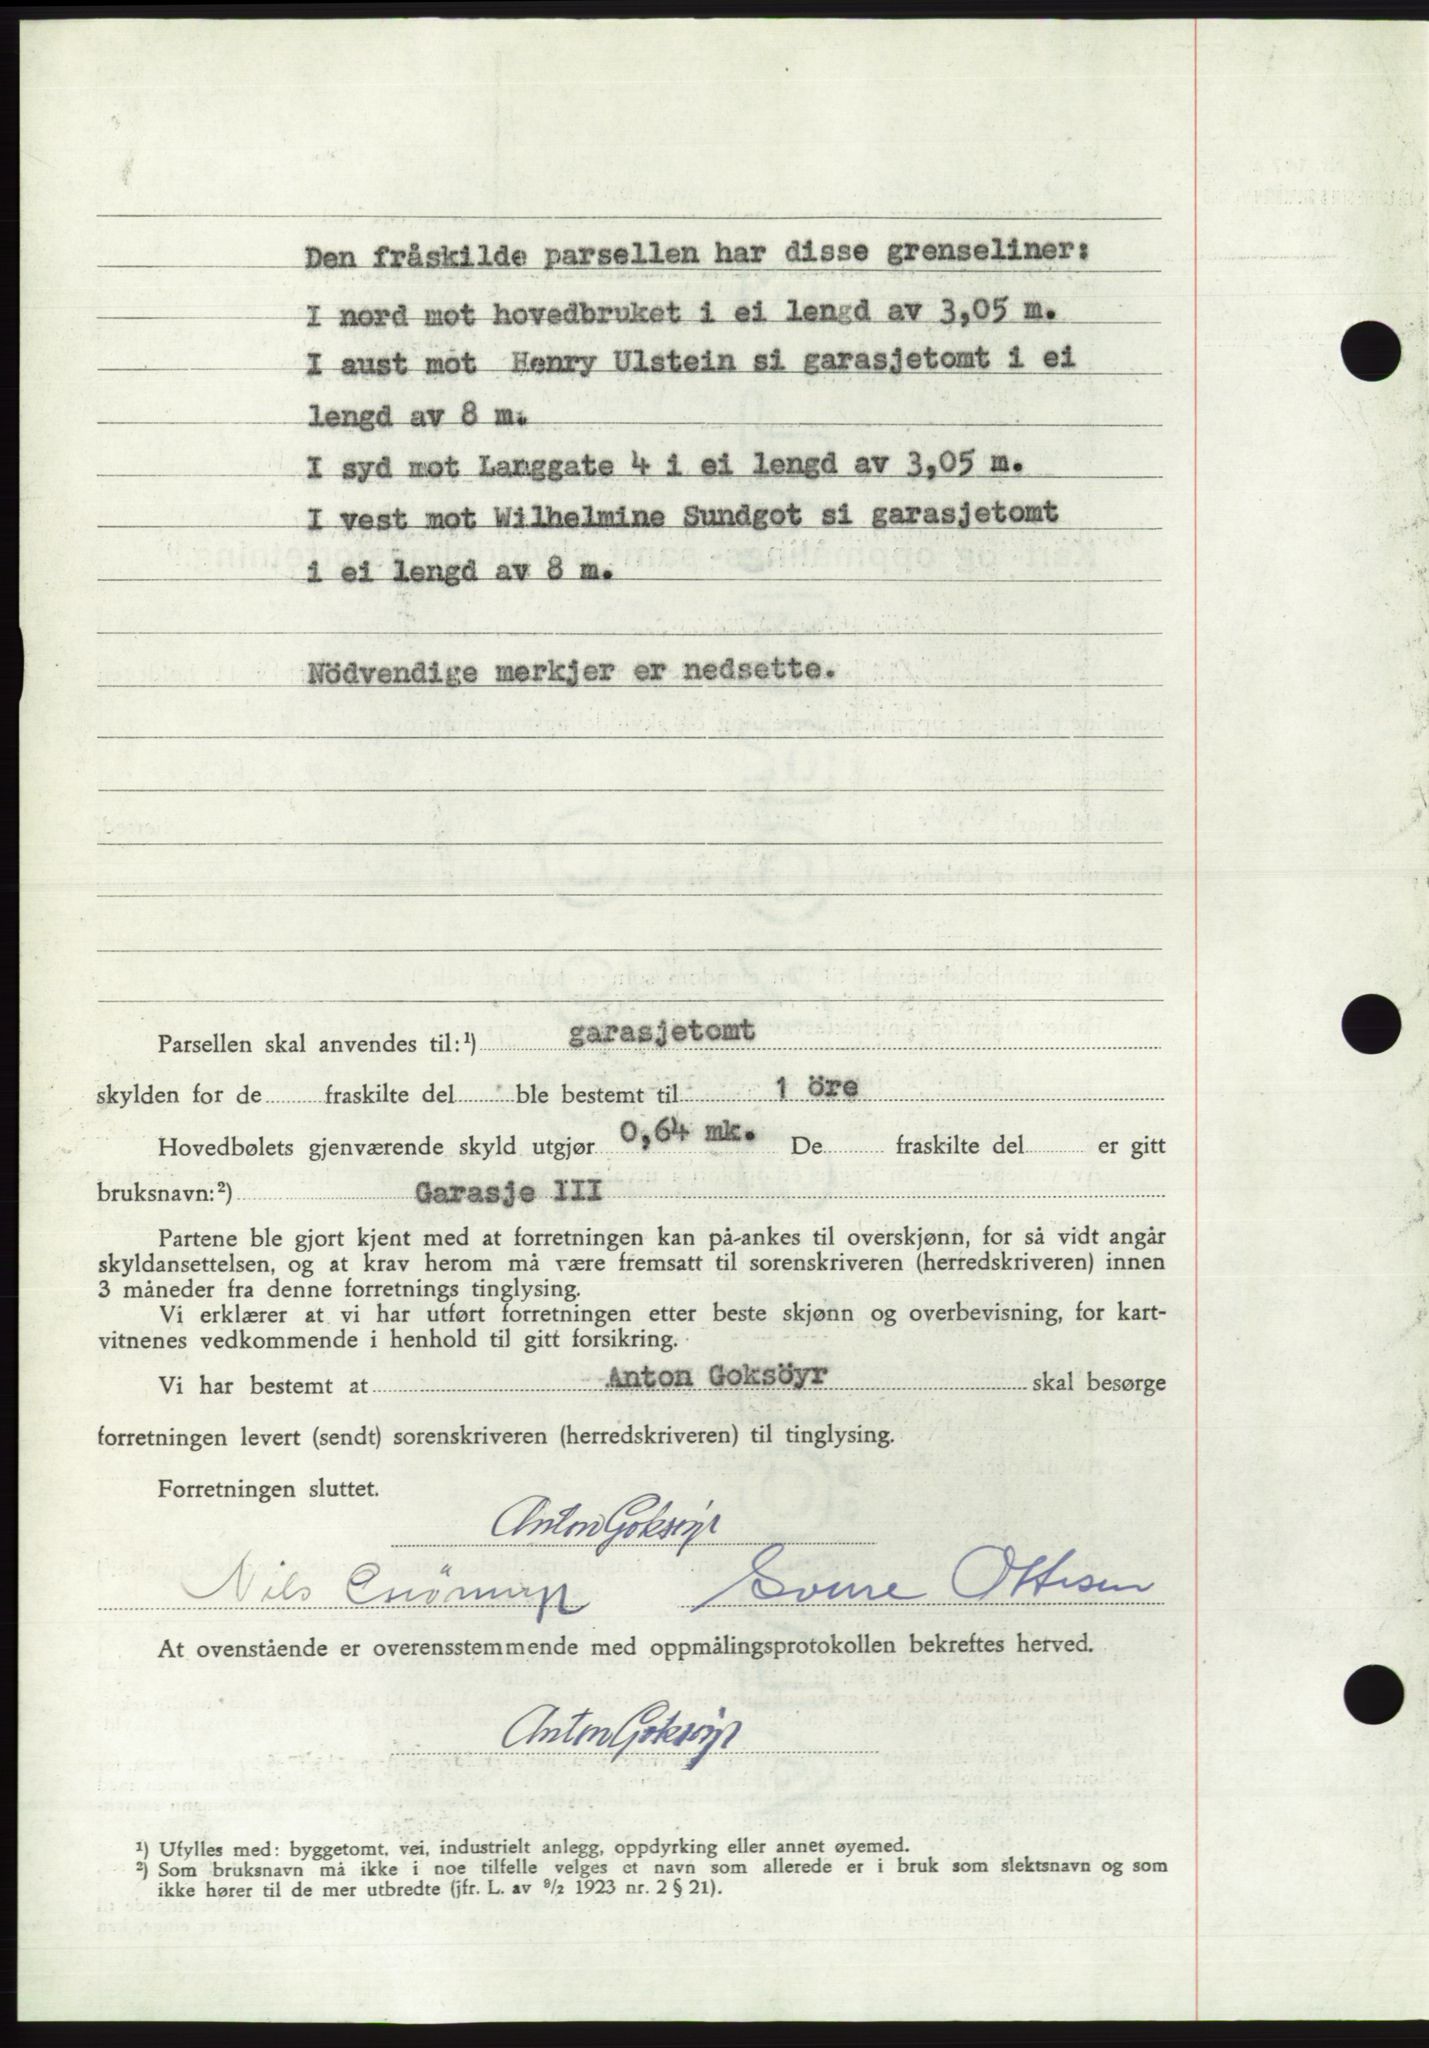 Den fråskilde parsellen har disse grenseliner:
I nord mot hovedbruket i ei lengd av 3,05 m.
I aust mot Henry Ulstein si garasjetomt i ei
lengd av 8 m.
I syd mot Langgate 4 i ei lengd av 3,05 m.
I vest mot Wilhelmine Sundgot si garasjetomt
i ei lengd av 8 m.
Nödvendige merkjer er nedsette.
Parsellen skal anvendes til:¹) garasjetomt
skylden for de fraskilte del ble bestemt til 1 öre
Hovedbølets gjenværende skyld utgjør 0,64 mk. De fraskilte del er gitt
bruksnavn:²) Garasje III
Partene ble gjort kjent med at forretningen kan på-ankes til overskjønn, for så vidt angår
skyldansettelsen, og at krav herom må være fremsatt til sorenskriveren (herredskriveren) innen
3 måneder fra denne forretnings tinglysing.
Vi erklærer at vi har utført forretningen etter beste skjønn og overbevisning, for kart-
vitnenes vedkommende i henhold til gitt forsikring.
Vi har bestemt at Anton Goksöyr skal besørge
forretningen levert (sendt) sorenskriveren (herredskriveren) til tinglysing.
Forretningen sluttet.
Anton Goksöyr
Nils Sverre Ottesen
At ovenstående er overensstemmende med oppmålingsprotokollen bekreftes herved.
Anton Goksöyr
¹) Ufylles med: byggetomt, vei, industrielt anlegg, oppdyrking eller annet øyemed.
²) Som bruksnavn må ikke i noe tilfelle velges et navn som allerede er i bruk som slektsnavn og som
ikke hører til de mer utbredte (jfr. L. av ⁹/₂ 1923 nr. 2 § 21).